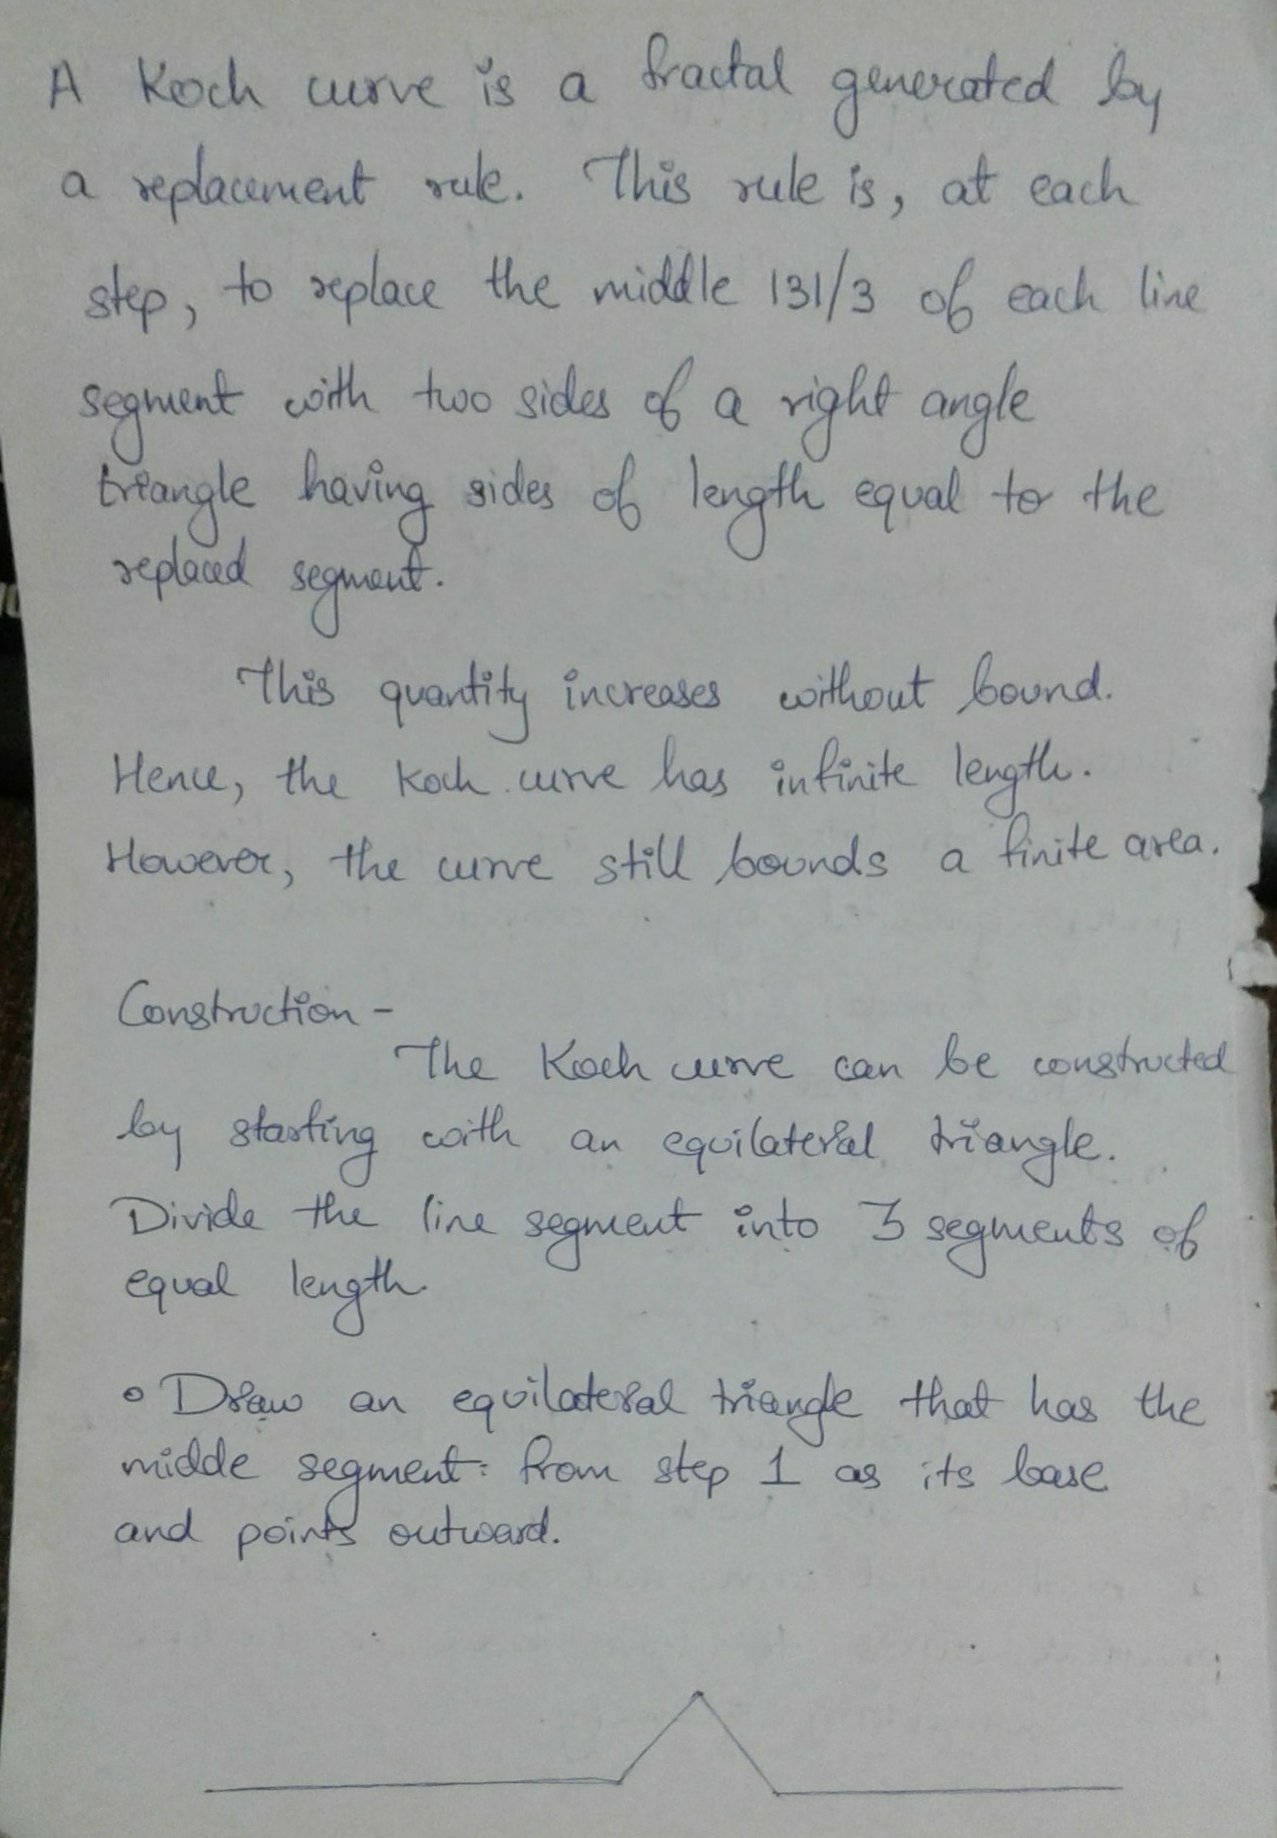 A Koch curve is a fractal generated by
a replacement rule. This rule is, at each
step, to replace the middle 131/3 of each line
segment with two sides of a right angle
triangle having sides of length equal to the
replaced segment.
This quantity increases without bound.
Hence, the Koch curve has infinite length.
However, the curve still bounds a finite area.
Construction -
The Koch curve can be constructed
by starting with an equilateral triangle.
Divide the line segment into 3 segments of
equal length.
• Draw an equilateral triangle that has the
midde segment: from step 1 as its base
and points outward.